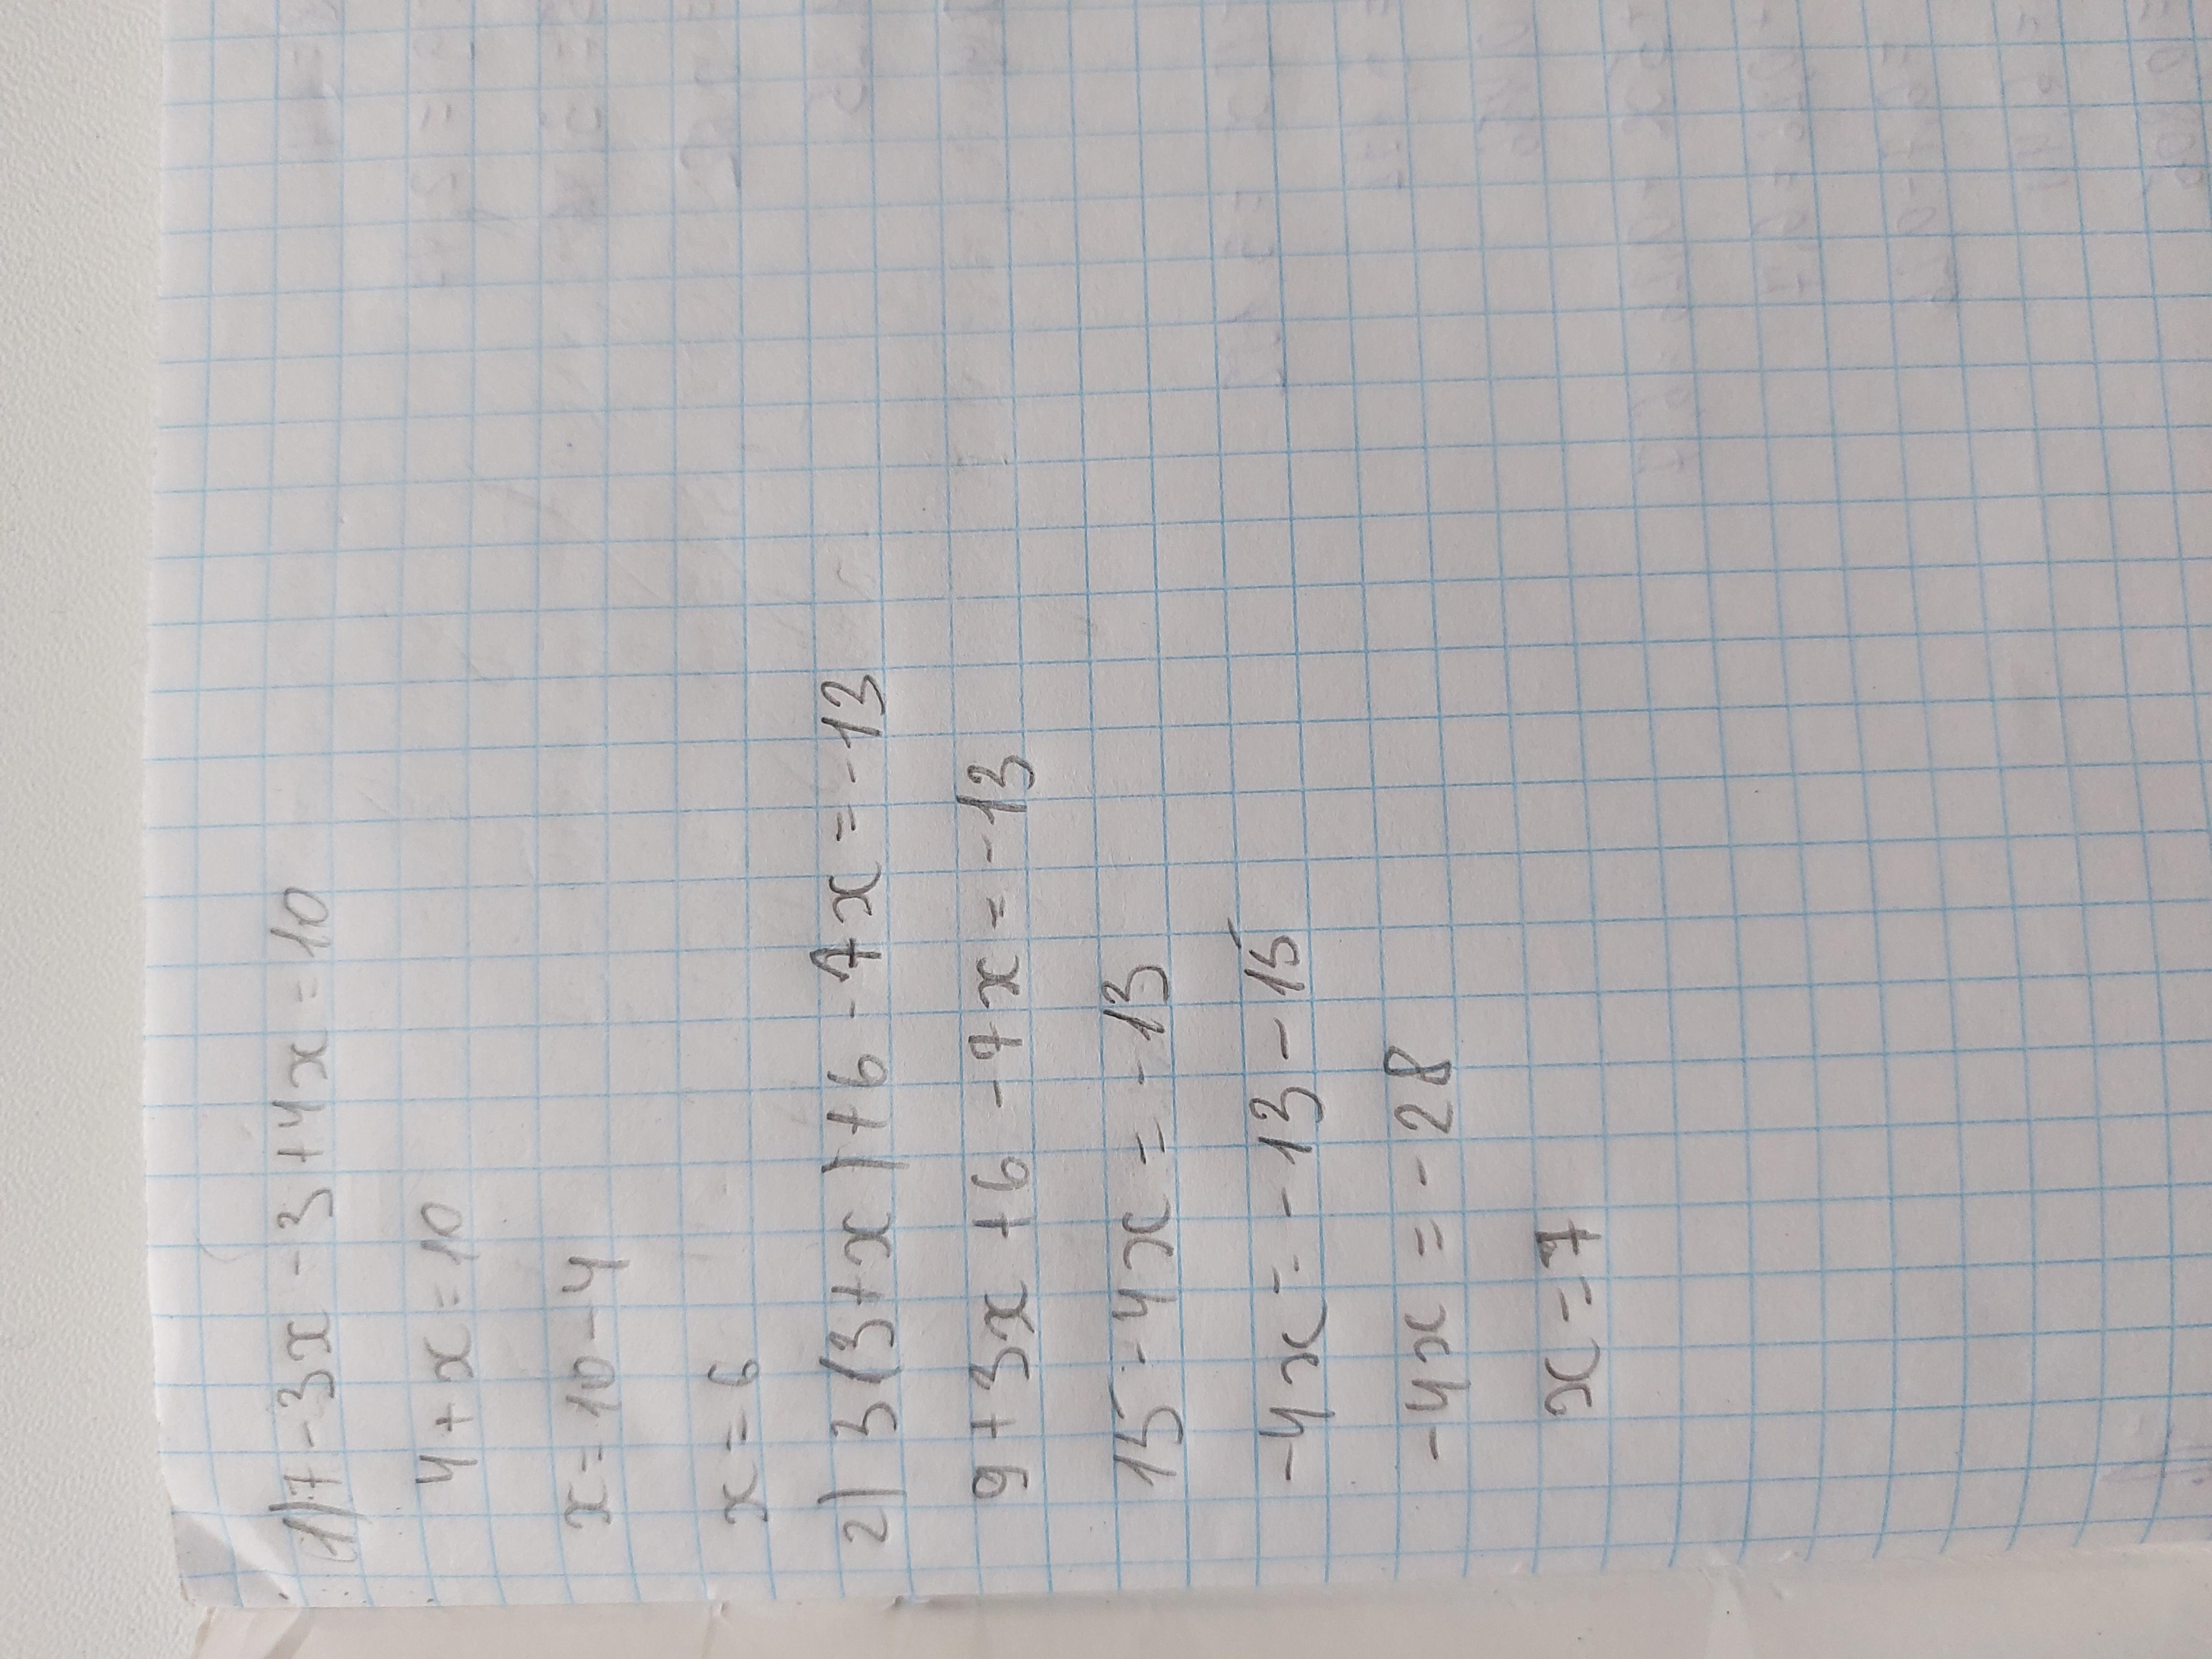 1) 7-3x-3+4x=10
4+x=10
x=10-4
x=6
2) 3(3+x)+6-7x=-13
9+3x+6-7x=-13
15-4x=-13
-4x=-13-15
-4x=-28
x=7